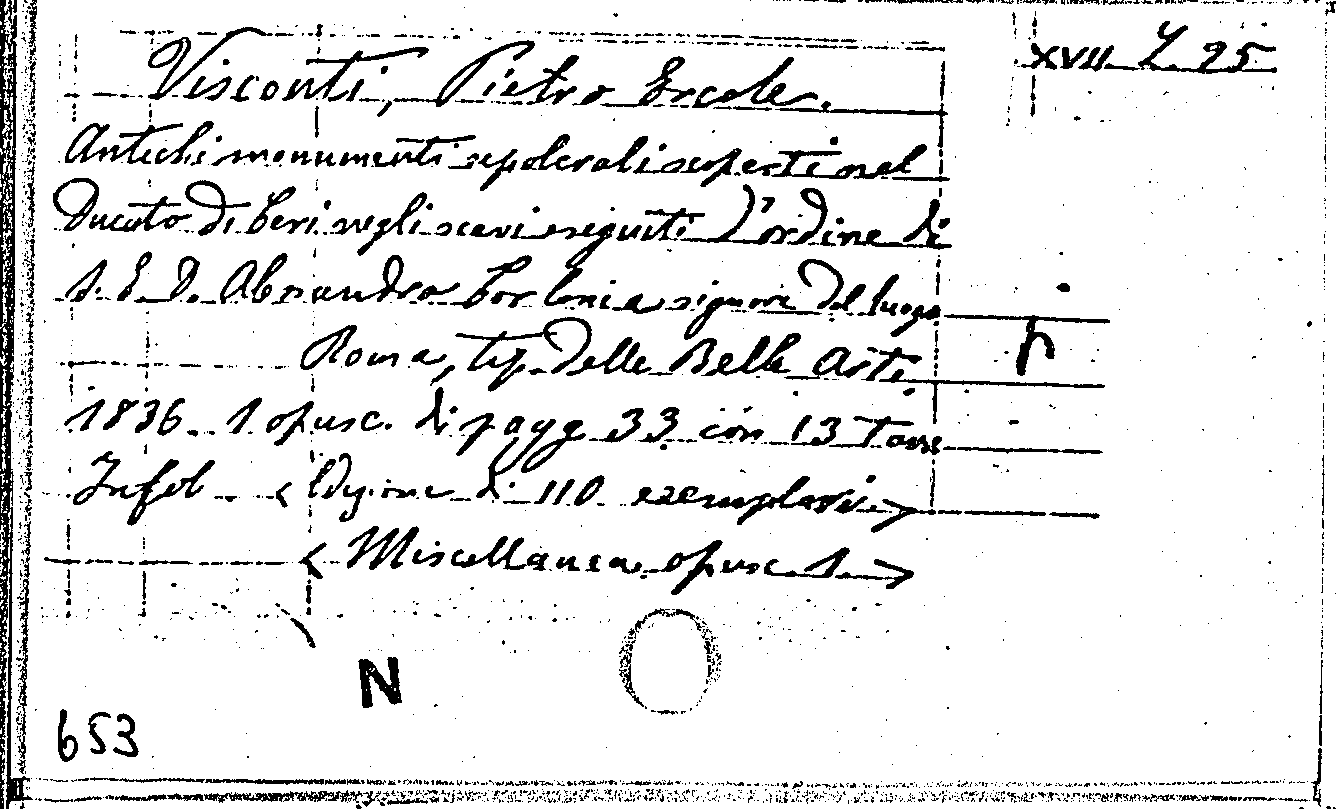 Visconti, Pietro Ercole.
XVII. Z. 25
Antichi monumenti sepolcrali scoperti nel
Ducato di Ceri negli scavi eseguiti d'ordine di
S. E. D. Alessandro Torlonia signore del luogo
Roma, tip. delle Belle Arti,
1836. 1 opusc. di pagg 33 con 13 Tavv
In fol. <Edizione di 110 esemplari>
<Miscellanea opusc. 1.>
N
653